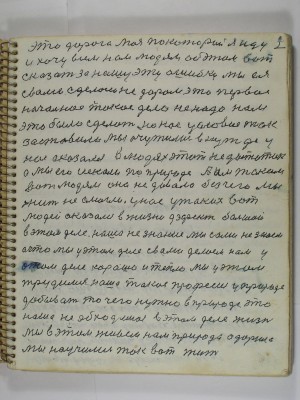 9
это дорога моя покоторой я иду
и хочу всем нам людям об этом вот
сказат за нашу эту ошибку мы ея
свами сделали не даром это первое
начальное такое дело не надо нам
это было сделат но нас условие так
заставило мы очутилис в нужде у
нас оказалос в людях этот недостаток
о мы его искали по природе А им таком
вот людям она не давала без чего мы
жит не смогли, у нас у таких вот
людей оказалос в жизни дефект большой
в этом деле, наша не знание мы сами не знали
ачто мы у этом деле свами делаем нам у
этом деле хорошо и тепло мы у этом
трудимся наша такая професия у природе
добыват то чего нужно в природе это
наша не обходимост в этом деле жизн
мы в этом живем нам природа одарила
мы научилис так вот жит